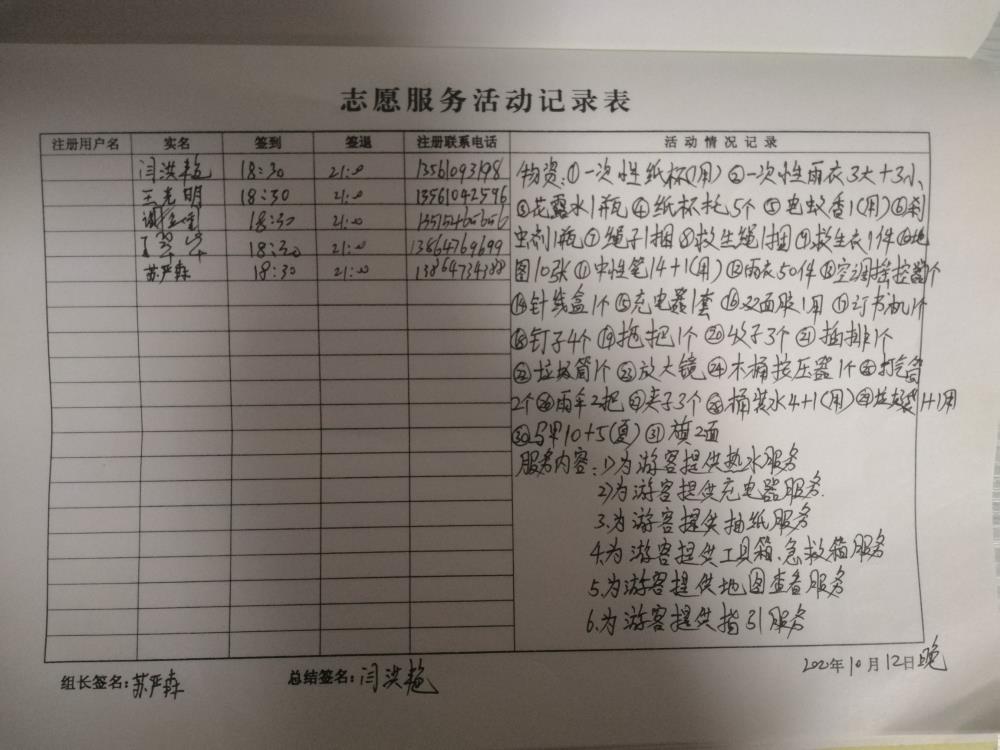 志愿服务活动记录表
注册用户名 实名 签到 签退 注册联系电话 活动情况记录
闫洪艳 18:30 21:00 13561093198
王光明 18:30 21:00 13561042596
18:30 21:00
18:30 21:00 13864769699
苏严森 18:30 21:00 13864734388
物资:①一次性纸杯1(用) ②一次性雨衣3大+3小
③花露水1瓶 ④纸杯托5个 ⑤电蚊香1(用) ⑥杀
虫剂1瓶 ⑦绳子1捆 ⑧救生绳1捆 ⑨救生衣1件 ⑩地
图10张 ⑪中性笔14+1(用) ⑫雨衣50件 ⑬空调摇控器1个
⑭针线盒1个 ⑮充电器1套 ⑯双面胶1用 ⑰订书机1个
⑱钉子4个 ⑲拖把1个 ⑳ 3个 ㉑插排1个
㉒垃圾筒1个 ㉓放大镜 ㉔木桶按压器1个 ㉕打气筒
2个 ㉖雨伞2把 ㉗夹子3个 ㉘桶装水4+1(用) ㉙垃圾袋1+1用
㉚马甲10+5(夏) ㉛旗2面
服务内容:1)为游客提供热水服务
2)为游客提供充电器服务.
3.为游客提供抽纸服务
4.为游客提供工具箱、急救箱服务
5.为游客提供地图查看服务
6.为游客提供指引服务
2020年10月12日晚
组长签名:苏严森 总结签名:闫洪艳